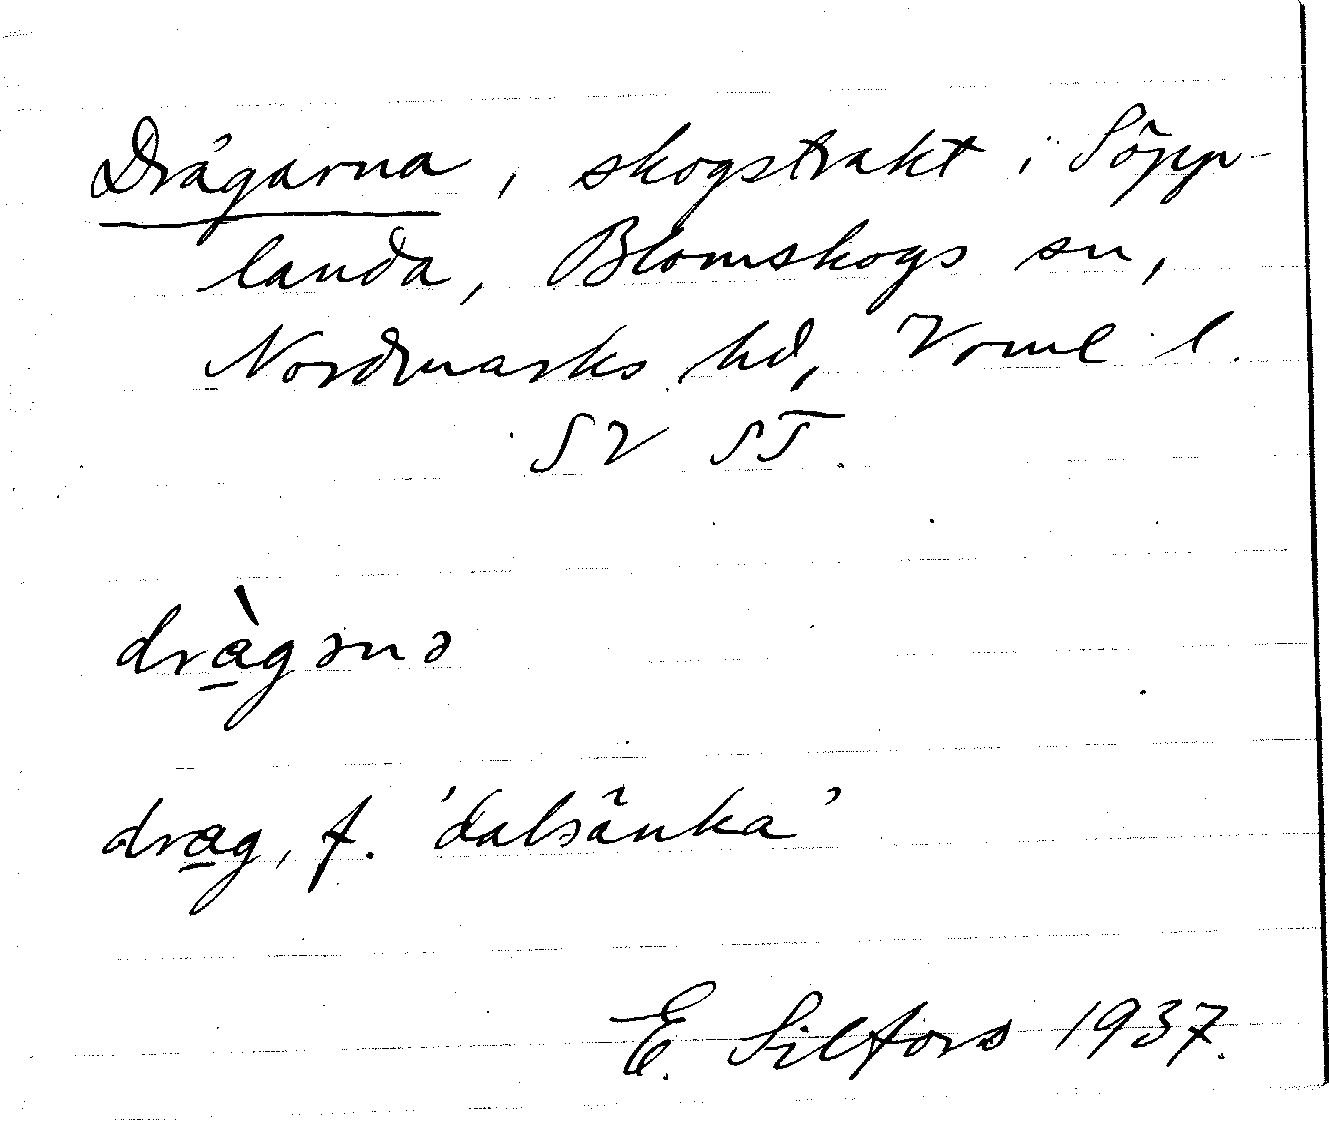 Drågarna, skogstrakt i Söpp-
landa, Blomskogs sn,
Nordmarks hd, Verml l.
SV ST.
drà̱gənə
dra̱g, f. 'dalsänka'
E. Silfors 1937.